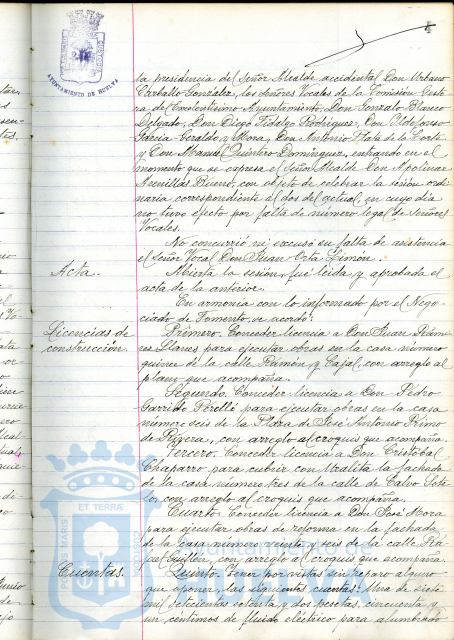 AYUNTAMIENTO DE HUELVA
la presidencia del Señor Alcalde accidental Don Urbano
Carballo González, los Señores Vocales de la Comisión Gesto
ra del Excelentísimo Ayuntamiento, Don Gonzalo Blanco
Delgado, Don Diego Fidalgo Rodríguez, Don Ildefonso
García-Geraldo y Mora, Don Antonio de la Corte
y Don Manuel Quintero Domínguez, entrando en el
momento que se expresa el Señor Alcalde Don Apolinar
Arenillas Bueno, con objeto de celebrar la sesión ordi
naria correspondiente al dos del actual, en cuyo dia
no tuvo efecto por falta de número legal de Señores
Vocales.
No concurrió ni excusó su falta de asistencia
el Señor Vocal Don Juan Orta Limón.
Acta.
Abierta la sesión, fué leida y aprobada el
acta de la anterior.
En armonía con lo informado por el Nego
ciado de Fomento, se acordó:
Licencias de
construcción.
Primero. Conceder licencia a Don Juan
Llanes para ejecutar obras en la casa número
quince de la calle Ramón y Cajal, con arreglo al
plano que acompaña.
Segundo. Conceder licencia a Don Pedro
Garrido Perelló para ejecutar obras en la casa
número seis de la Plaza de José Antonio Primo
de Rivera, con arreglo al croquis que acompaña.
Tercero. Conceder licencia a Don Cristóbal
Chaparro para cubrir con Uralita la fachada
de la casa número tres de la calle de Calvo Sote
lo, con arreglo al croquis que acompaña.
Cuarto. Conceder licencia a Don José Mora
para ejecutar obras de reforma en la fachada
de la casa número veinte y seis de la calle
Guillén, con arreglo al croquis que acompaña.
Cuentas.
Quinto. Tener por vistas sin reparo alguno
que oponer, las siguientes cuentas: Una de siete
mil setecientas setenta y dos pesetas, cincuenta y
un céntimos de fluido eléctrico para alumbrado
PORTUS MARIS ET TERRAE CUSTODIA
Ayuntamiento de